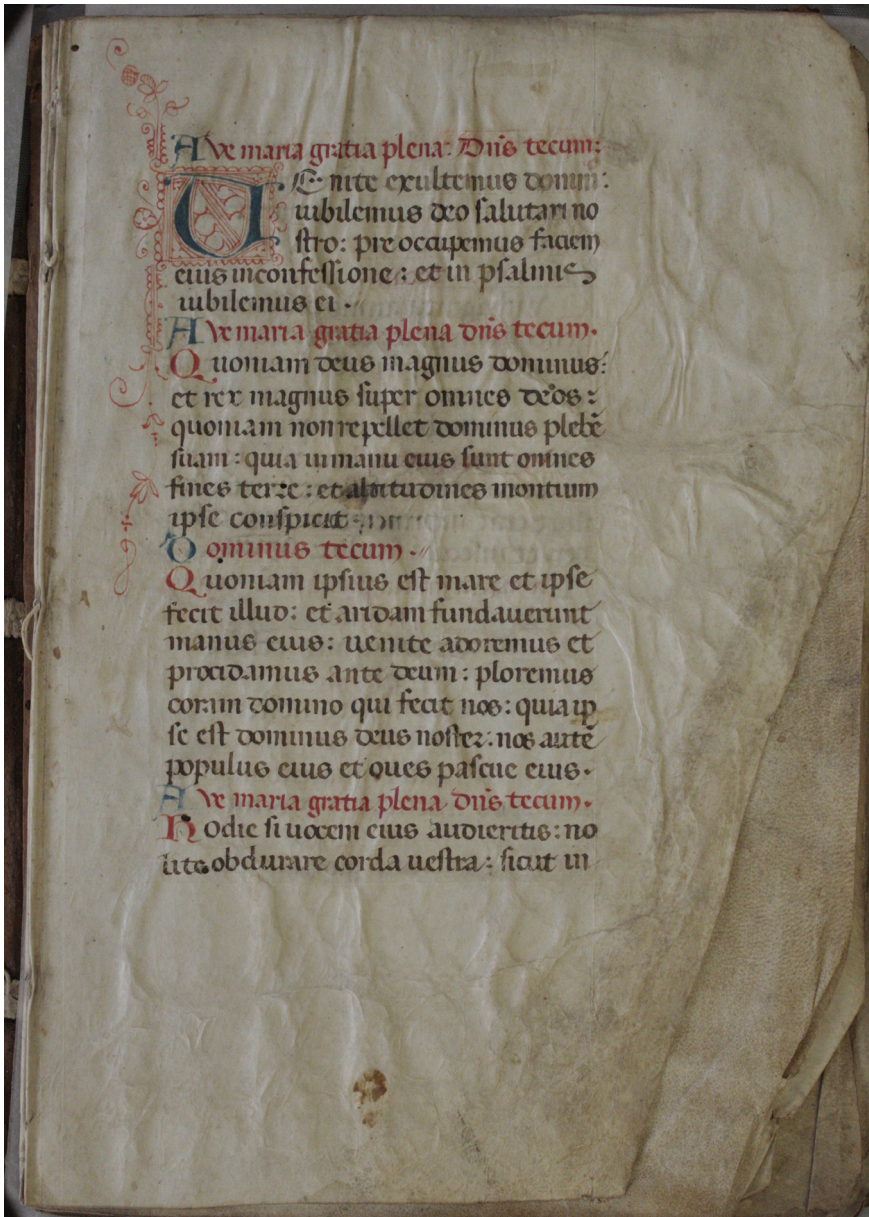 Ave maria gratia plena: Dn̄s tecum:
VEnite exultemus domin:
iubilemus deo salutari no
stro: pre occupemus faciem
eius inconfessione: et in psalmis
iubilemus ei.
Ave maria gratia plena dn̄s tecum.
Quoniam deus magnus dominus:
et rex magnus super omnes deos:
quoniam non repellet dominus plebē
suam: quia in manu eius sunt omnes
fines terre: et altitudines montium
ipse conspicit
Dominus tecum.
Quoniam ipsius est mare et ipse
fecit illud: et aridam fundaverunt
manus eius: uenite adoremus et
procidamus ante deum: ploremus
coram domino qui fecit nos: quia ip
se est dominus deus noster: nos autē
populus eius et oues pascue eius.
Ave maria gratia plena dn̄s tecum.
Hodie si uocem eius audieritis: no
lite obdurare corda uestra: sicut in